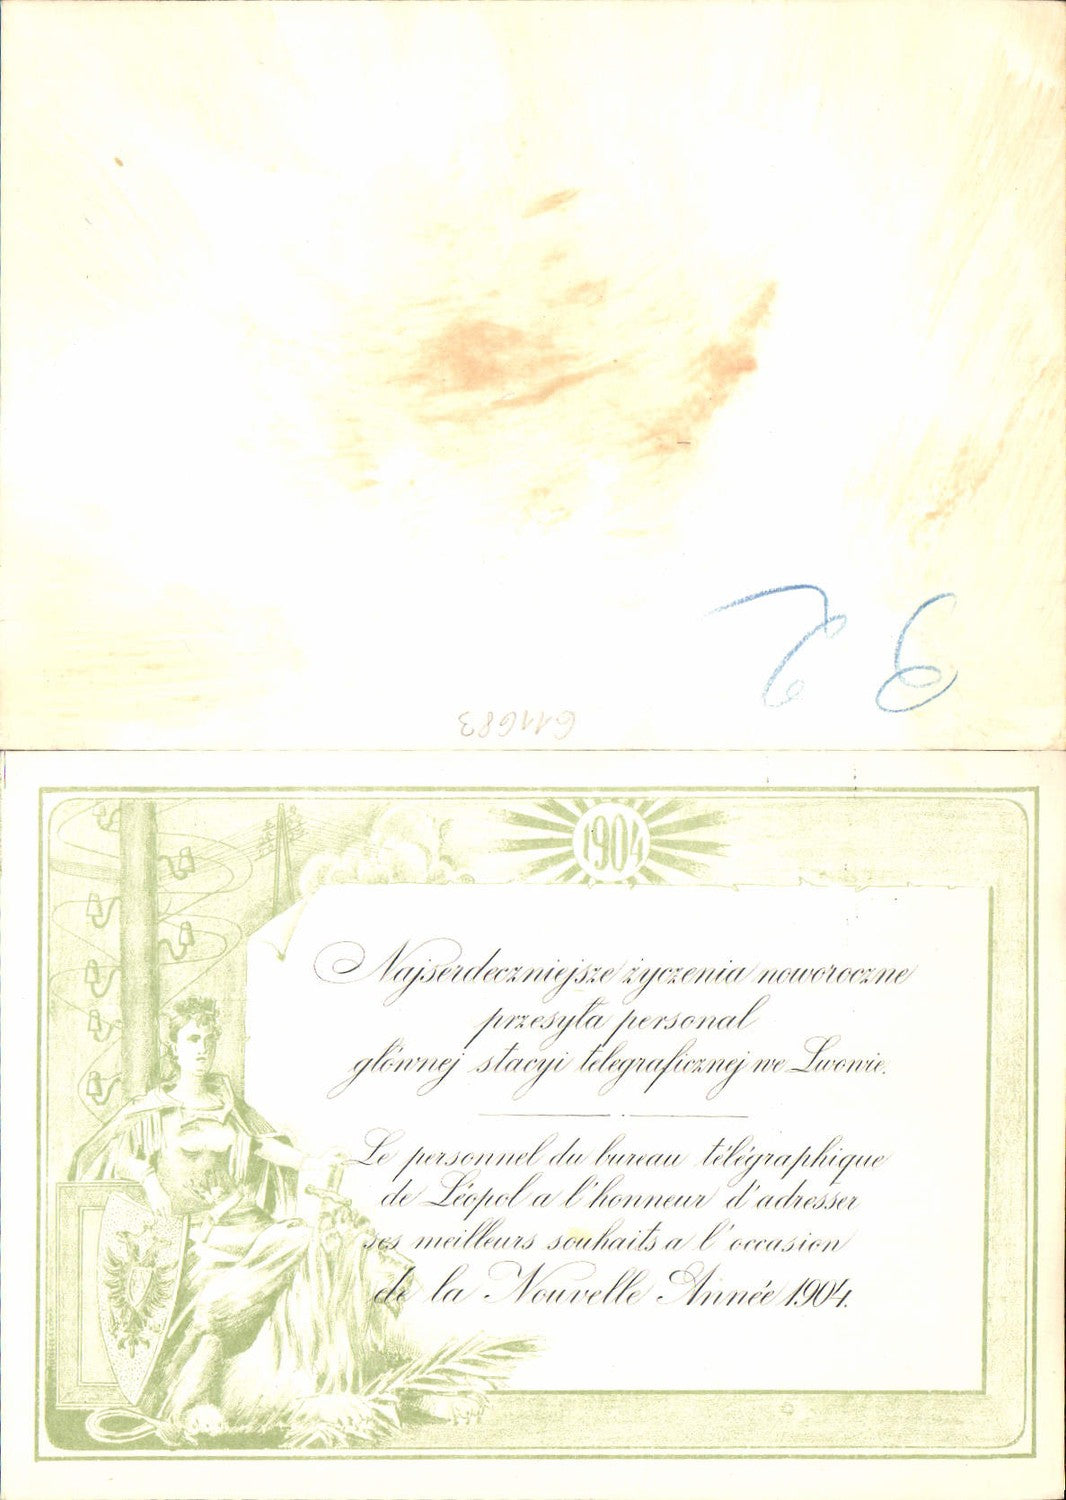 92
611683
1904
Najserdeczniejsze życzenia noworoczne
przesyła personal
głównej stacyi telegraficznej we Lwowie.
Le personnel du bureau télégraphique
de Léopol a l'honneur d'adresser
ses meilleurs souhaits a l'occasion
de la Nouvelle Année 1904.